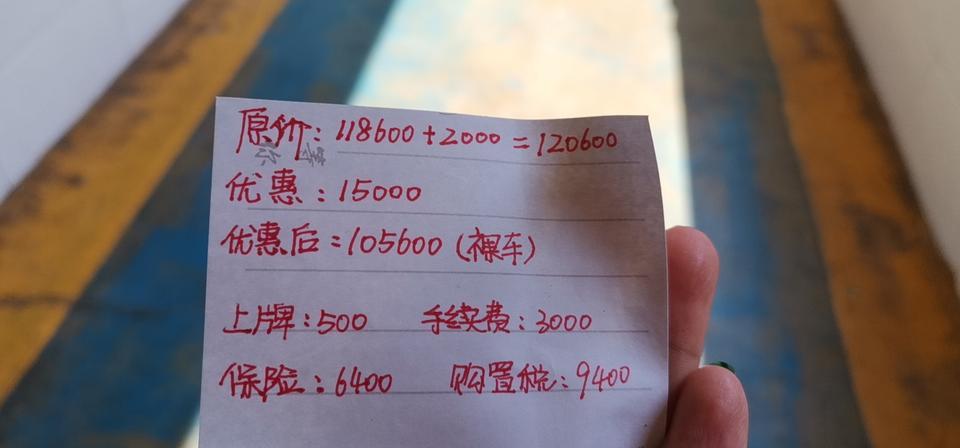 原价：118600+2000=120600
优惠：15000
优惠后：105600（裸车）
上牌：500 手续费：3000
保险：6400 购置税：9400